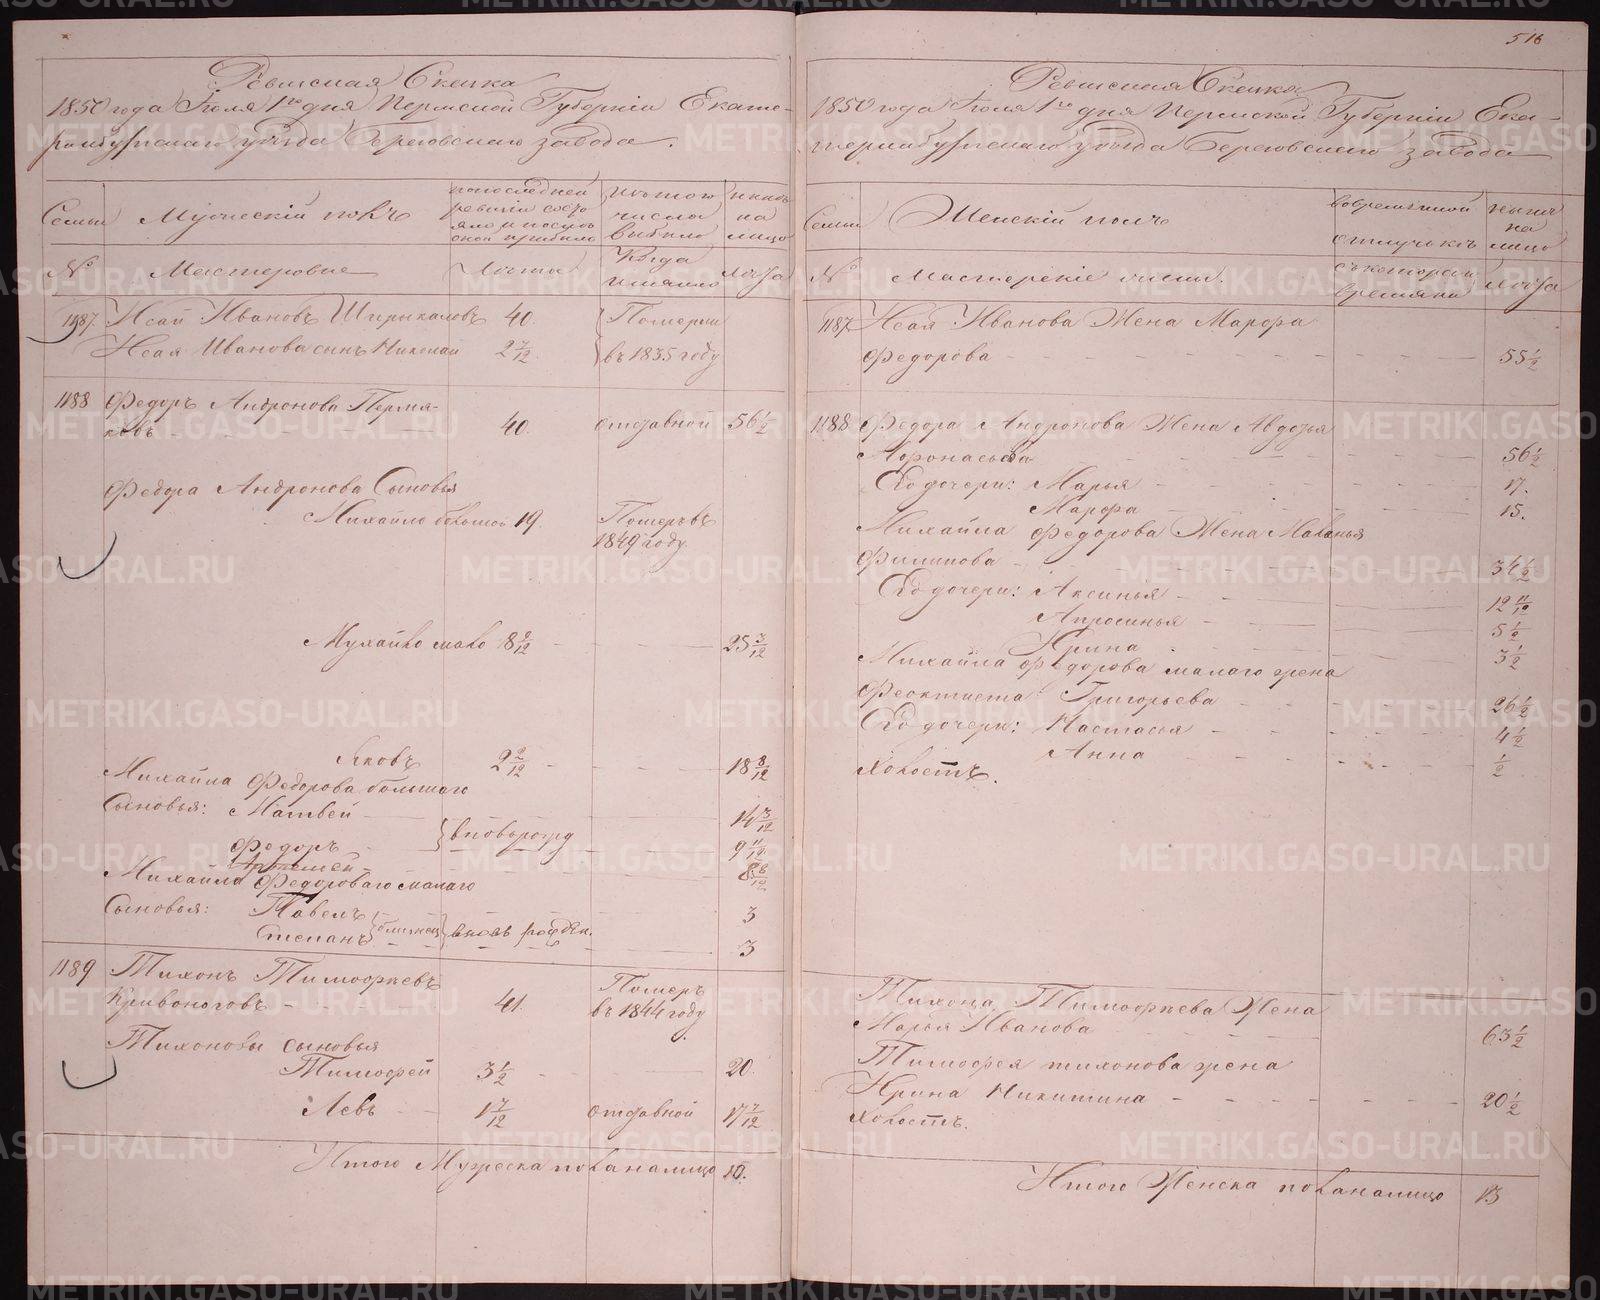 516
Ревизская Сказка
1850 года Июля 1го дня Пермской Губернiи Екате-
ринбургскаго уѣзда Березовскаго завода.
Семьи
Мужескiй полъ
по последней ревизiи состо яло и после оной прибыло
Изъ того числа выбыло
Ныне на лицо
№
Мастеровые
Лѣта
Когда именно
Лѣта
1187. Исай Ивановъ 40. Померли
Исая Иванова сынъ Николай 2 7/12 въ 1835 году
1188 Федоръ Андронова Пермя-
ковъ 40. отставной 56 1/2
Федора Андронова Сыновья
Михайло большой 19. Померъ въ
1849 году
Михайло мало 8 9/12 25 3/12
Яковъ 2 2/12 18 8/12
Михайла Федорова большаго
Сыновья: Матвей 14 3/12
Федоръ вновь рожд 9 11/12
8 8/12
Михайло Федороваго малаго
Сыновья: Павелъ 3
Степанъ близнец вновь рожден. 3
1189 Тихонъ Тимофѣевъ Померъ
Кривоноговъ 41. въ 1844 году
Тихоновы сыновья
Тимофей 3 1/2 20
Левъ 1 7/12 отставной 17 7/12
Итого Мужеска пола на лицо 10.
Ревизская Сказка
1850 года Июля 1го дня Пермской Губернiи Ека-
теринбургскаго уѣзда Березовскаго завода
Семьи
Женскiй полъ
во временной отлучькѣ
ныне на лицо
№
Мастерскiе жены.
съ котораго времяни
Лѣта
1187 Исая Иванова Жена Марфа
Федорова 55 1/2
1188 Федора Андронова Жена Авдотья
Афонасьева 56 1/2
Его дочери: Марья 17.
Марфа 15.
Михайла Федорова Жена Маланья
Филипова 34 1/2
Его дочери: Аксинья 12 11/12
Апросинья 5 1/2
Ирина 3 1/2
Михайла Федорова малаго жена
Феоктиста Григорьева 26 1/2
Его дочери: Настасья 4 1/2
Анна 1/2
Холостъ.
Тихона Тимофѣева Жена
Марья Иванова 63 1/2
Тимофея тихонова жена
Ирина Никитина 20 1/2
Холостъ.
Итого Женска пола на лицо 13